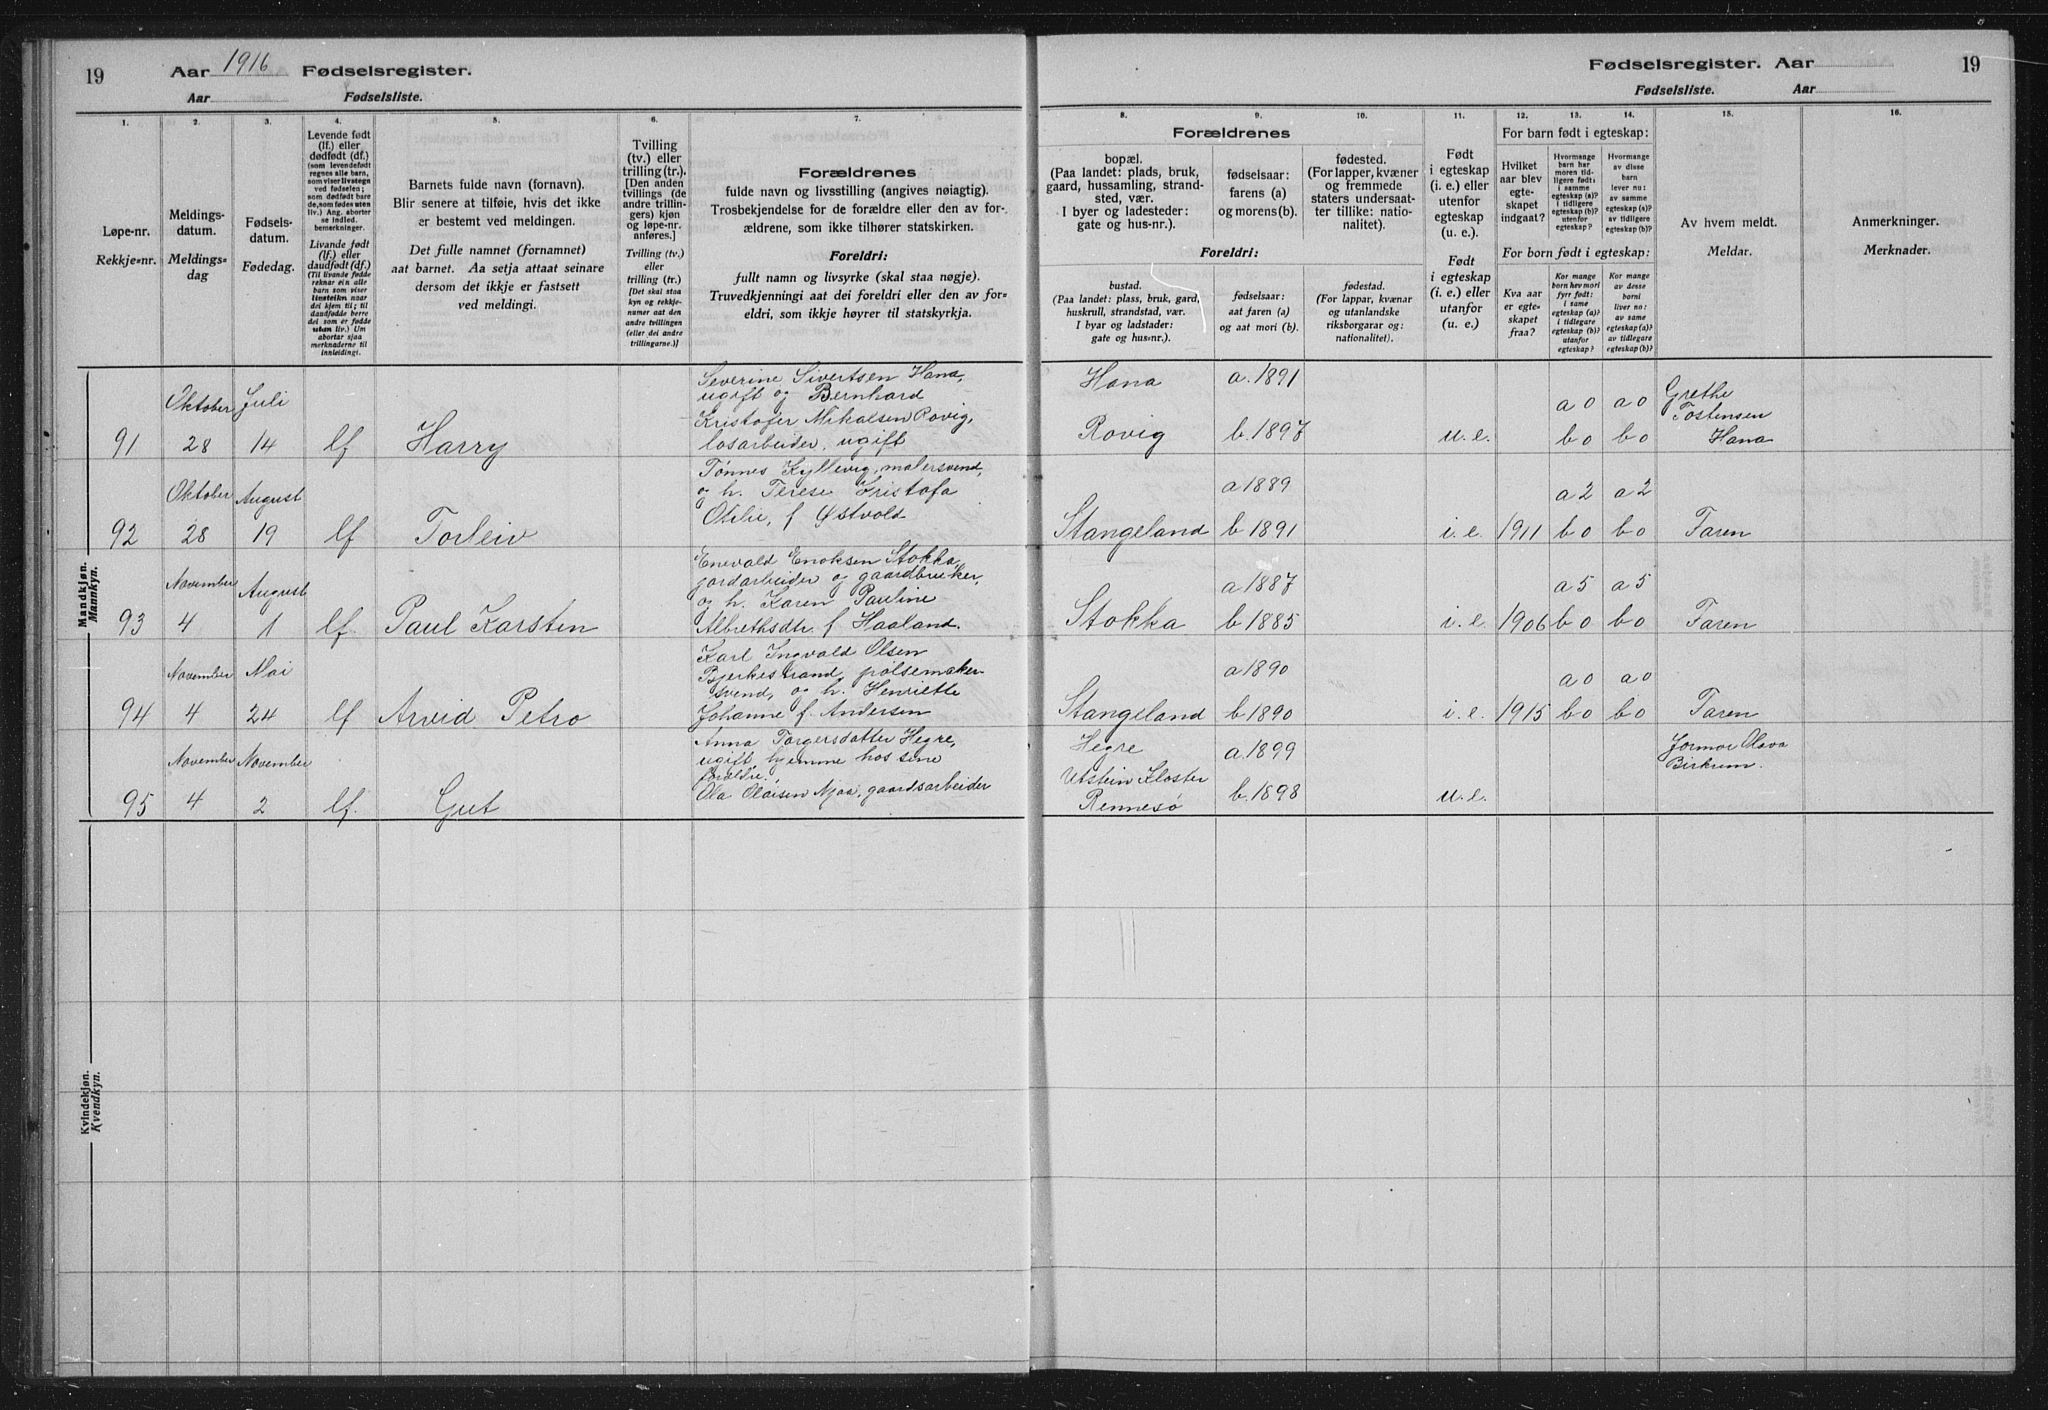 19 Aar 1916 Fødselsregister.
Aar Fødselsliste.
Fødselsregister. Aar 19
Fødselsliste. Aar
1. 2. 3. 4. 5. 6. 7. 8. 9. 10. 11. 12. 13. 14. 15. 16.
Løpe-nr.
Rekkje=nr.
Meldings-
datum.
Meldings=
dag
Fødsels-
datum.
Fødedag.
Levende født
(lf.) eller
dødfødt (df.)
(som levendefødt
regnes alle barn,
som viser livstegn
ved fødselen;
som dødfødt bare
de, som fødes uten
liv.) Ang. aborter
se indled.
bemerkninger.
Livande født
(lf.) eller
daudfødt (df.)
(Til livande fødde
reknar ein alle
barn som viser
livsteikn noar
dei kjem til; til
daudfødde berre
dei som er fødde
utan liv.) Um
abortar sjaa
merknaderne til
innleidingi.
Barnets fulde navn (fornavn).
Blir senere at tilføie, hvis det ikke
er bestemt ved meldingen.
Det fulle namnet (fornamnet)
aat barnet. Aa setja attaat seinare
dersom det ikkje er fastsett
ved meldingi.
Tvilling
(tv.) eller
trilling (tr.).
[Den anden
tvillings (de
andre trillin-
gers) kjøn
og løpe-nr.
anføres.]
Tvilling (tv.)
eller
trilling (tr.)
[Det skal staa
kyn og rekkje=
numer aat den
andre tvillingen
(eller dei andre
trillingarne.)]
Forældrenes
fulde navn og livsstilling (angives nøiagtig).
Trosbekjendelse for de forældre eller den av for-
ældrene, som ikke tilhører statskirken.
Foreldri:
fullt namn og livsyrke (skal staa nøgje).
Truvedkjenningi aat dei foreldri eller den av for-
eldri, som ikkje høyrer til statskyrkja.
Forældrenes
bopæl.
(Paa landet: plads, bruk,
gaard, hussamling, strand-
sted, vær.
I byer og ladesteder:
gate og hus-nr.).
fødselsaar:
farens (a)
og morens (b).
fødested.
(For lapper, kvæner
og fremmede
staters undersaat-
ter tillike: natio-
nalitet).
Foreldri:
bustad.
(Paa landet: plass, bruk, gard,
huskrull, strandstad, vær.
I byar og ladstader:
gate og hus=nr.).
fødselsaar:
aat faren (a)
og aat mori (b).
fødestad.
(For lappar, kvænar
og utanlandske
riksborgarar og:
nationalitet).
Født
i egteskap
(i. e.) eller
utenfor
egteskap
(u. e.).
Født
i egteskap
(i. e.) eller
utanfor
(u. e.).
For barn født i egteskap:
Hvilket
aar blev
egte-
skapet
indgaat?
Hvormange
barn har
moren tid-
ligere født:
i samme
egteskap (a)?
i tidligere
egteskap (b)?
utenfor
egteskap?
Hvormange
av disse
lever nu:
av samme
egteskap (a)?
av tidligere
egteskap (b)?
For born født i egteskap:
Kva aar
er egte-
skapet
fraa?
Kor mange
born hev mori
fyrr født:
i same
egteskap (a)?
i tidlegare
egteskap (b)?
utanfor
egteskap?
Kor mange
av desse
borni
liver no:
av same
egteskap (a)?
av tidlegare
egteskap (b)?
Av hvem meldt.
Meldar.
Anmerkninger.
Merknader.
Mandkjøn.
Mannkyn.
91 Oktober 28 Juli 14 lf Harry
Severine Sivertsen Hana,
ugift og Bernhard
Kristofer Mikalsen Rovig,
løsarbeider, ugift
Hana a. 1891
Rovig b. 1897 u. e.
a 0 a 0
b 0 b 0
Grethe
Tostensen
Hana
92 Oktober 28 August 19 lf Torleiv
Tønnes Kyllevig, malersvend,
og h. Terese Kristofa
Otilie, f Østvold
a 1889
Stangeland b 1891 i. e. 1911
a 2 a 2
b 0 b 0
Faren
93 November 4 August 1 lf. Paul Karsten
Enevald Enoksen Stokka,
jordarbeider og gaardbruker,
og h. Karen Pauline
Albrethsdtr f. Haaland.
a 1887
Stokka b 1885 i. e. 1906
a 5 a 5
b 0 b 0
Faren
94 November 4 Mai 24 lf Arvid Petro
Karl Ingvald Olsen
Bjerkestrand, pølsemaker-
svend, og h. Henriette
Johanne f. Andersen
a 1890
Stangeland b 1890 i. e. 1915
a 0 a 0
b 0 b 0
Faren
95 November 4 November 2 lf. Gut
Anna Torgersdatter Hegre,
ugift hjemme hos sine
forældre.
Ola Olaisen Njaa, gaardsarbeider
Hegre a. 1899
Utstein Kloster
Rennesø b. 1898 u. e.
Jormor Olava
Birkrem.
Kvindekjøn.
Kvendkyn.